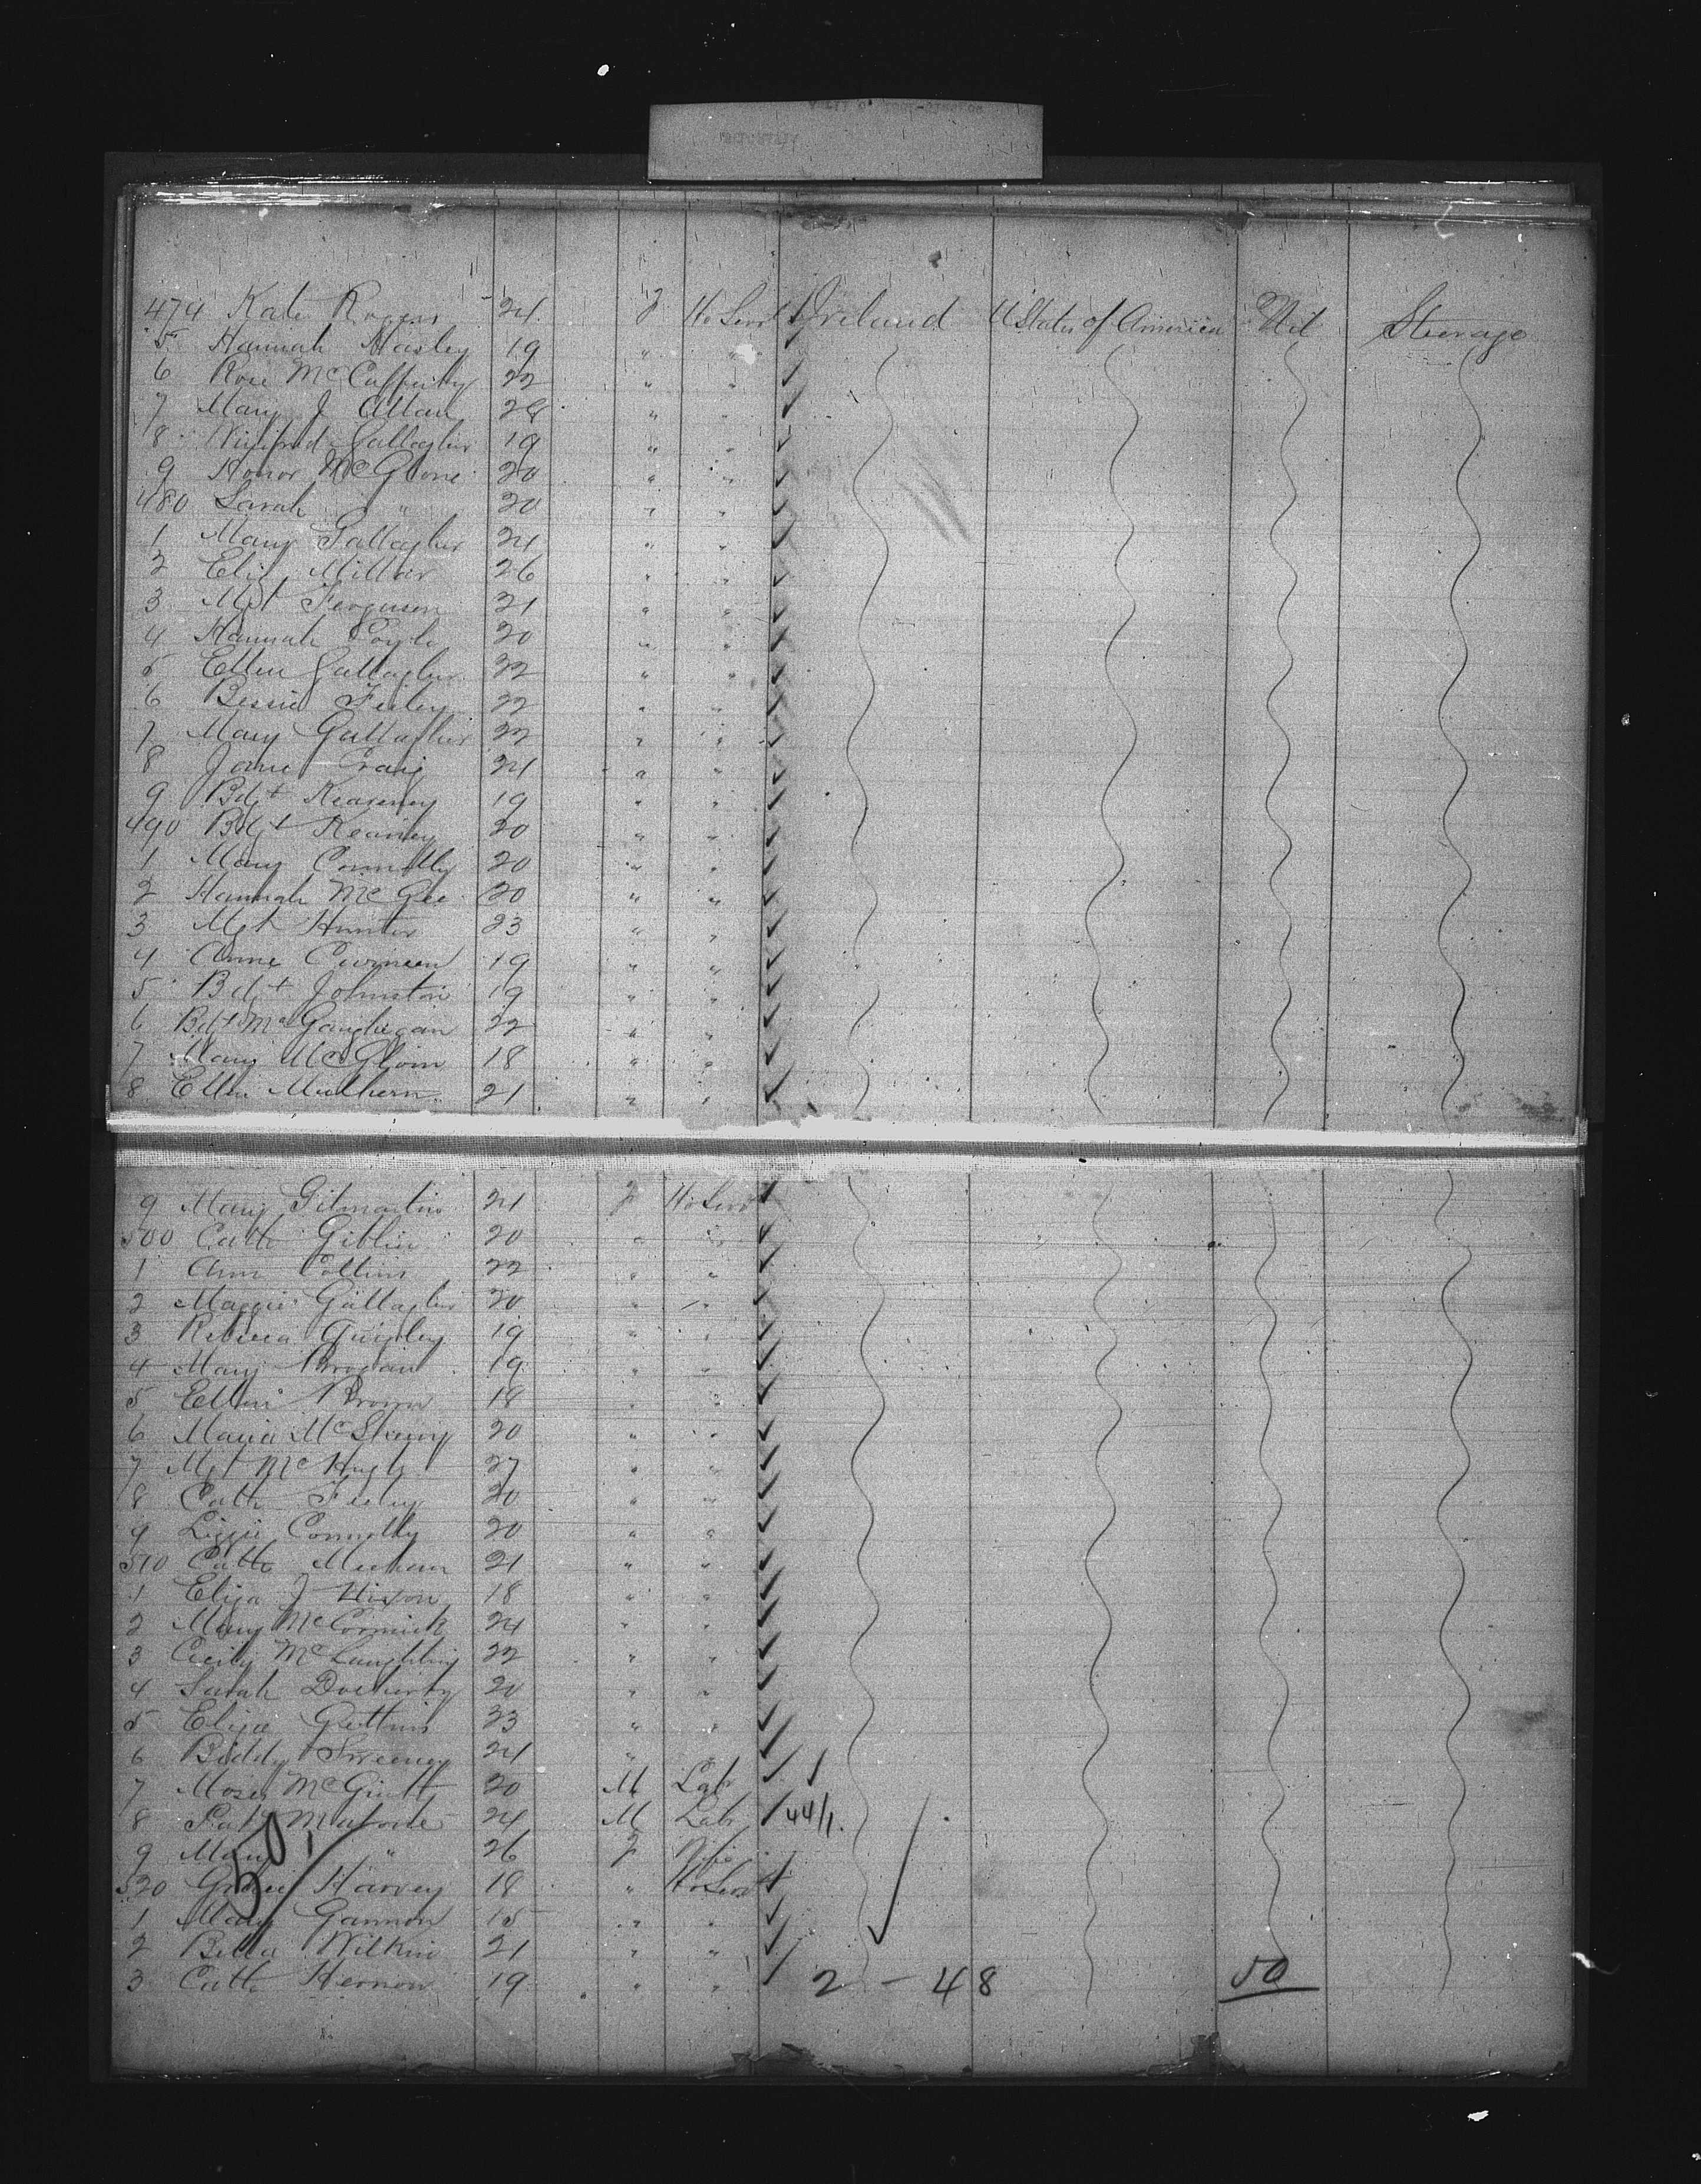 474 Kate Rogers 24 F Ho Serv Ireland U States of America Nil Steerage
5 Hannah Hasley 19 " "
6 Rose McCafferty 22 " "
7 Mary J 28 " "
8 Winifred Gallagher 19 " "
9 Honor McGlone 20 " "
480 Sarah " 20 " "
1 Mary Gallagher 24 " "
2 Eliz Millar 26 " "
3 Mgt Ferguson 21 " "
4 Hannah Coyle 20 " "
5 Ellen Gallagher 22 " "
6 Bessie Feeley 22 " "
7 Mary Gallagher 22 " "
8 Jane Craig 24 " "
9 Bdgt Kearney 19 " "
490 Bdgt Kearney 20 " "
1 Mary Connolly 20 " "
2 Hannah McGee 20 " "
3 Mgt Hunter 23 " "
4 Anne 19 " "
5 Bdgt Johnston 19 " "
6 Bdgt McGaughegan 22 " "
7 Mary McGloin 18 " "
8 Ellen Mulhern 21 " "
9 Mary Gilmartin 21 F Ho Serv
500 Cath Giblin 20 " "
1 Ann Collins 22 " "
2 Maggie Gallagher 20 " "
3 Rebecca Quigley 19 " "
4 Mary Brogan 19 " "
5 Ellen Brown 18 " "
6 Maria 20 " "
7 Mgt McHugh 27 " "
8 Cath Feeley 20 " "
9 Lizzie Connolly 20 " "
510 Cath Meehan 21 " "
1 Eliza J Nixon 18 " "
2 Mary McCormick 24 " "
3 Cecily McLaughlin 22 " "
4 Sarah Docherty 20 " "
5 Eliza Gettins 23 " "
6 Biddy Sweeney 24 " "
7 Moses 20 M Lab
8 Patk Malone 24 M Lab 44/1.
9 Mary " 26 F Wife
520 Grace Harvey 18 " Ho Serv
1 Mary Gannon 15 " "
2 Bella Wilkin 21 " "
3 Cath Hernon 19 " " 2 - 48 50
50